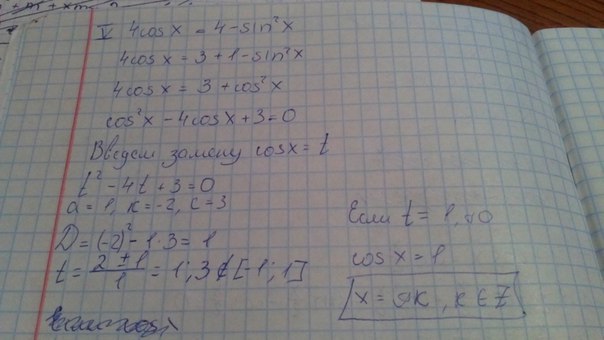 V 4cosx = 4 - sin²x
4cosx = 3 + 1 - sin²x
4cosx = 3 + cos²x
cos²x - 4cosx + 3 = 0
Введем замену cosx = t
t² - 4t + 3 = 0
a = 1, к = -2, c = 3
D = (-2)² - 1·3 = 1
t = (2 ± 1)/1 = 1; 3 ∉ [-1; 1]
Если t = 1, то
cosx = 1
x = πк, к ∈ Z